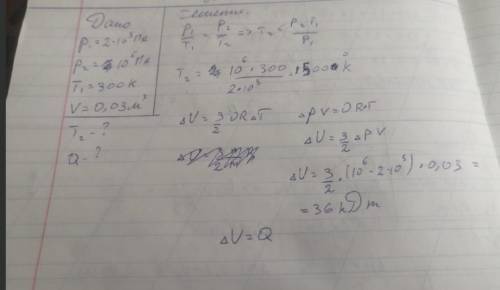 Дано
P₁=2·10⁵Па
P₂=10⁶Па
T₁=300K
V=0,03м³
T₂-?
Q-?
Решение.
P₁/T₁ = P₂/T₂ => T₂ = P₂T₁/P₁
T₂ = 10⁶·300/2·10⁵ = 1500 K
ΔU = 3/2 ϑRΔT ΔPV=ϑRΔT
ΔU = 3/2 ΔPV
ΔU = 3/2·(10⁶-2·10⁵)·0,03=
=36кДж
ΔU=Q